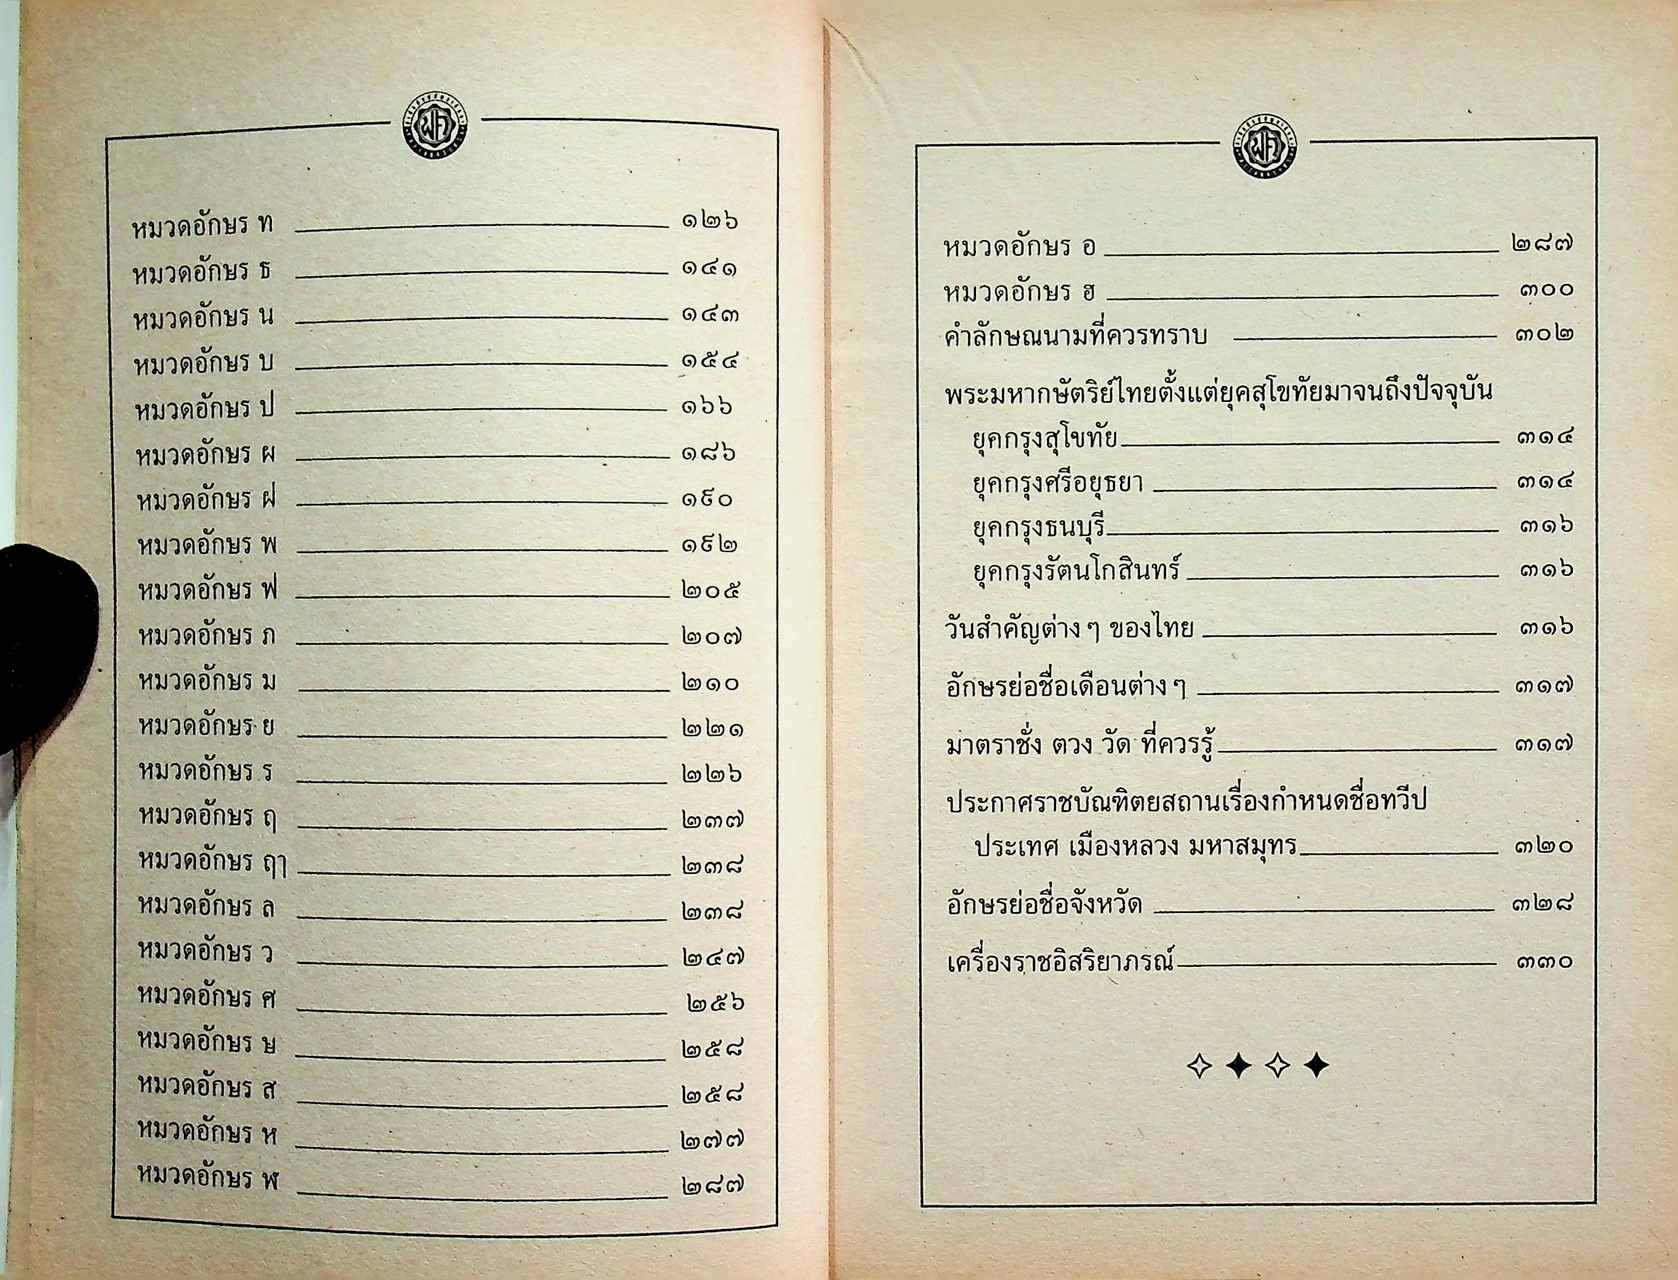 หมวดอักษร ท ๑๒๖
หมวดอักษร ธ ๑๔๑
หมวดอักษร น ๑๔๓
หมวดอักษร บ ๑๕๔
หมวดอักษร ป ๑๖๖
หมวดอักษร ผ ๑๘๖
หมวดอักษร ฝ ๑๙๐
หมวดอักษร พ ๑๙๒
หมวดอักษร ฟ ๒๐๕
หมวดอักษร ภ ๒๐๗
หมวดอักษร ม ๒๑๐
หมวดอักษร ย ๒๒๑
หมวดอักษร ร ๒๒๖
หมวดอักษร ฤ ๒๓๗
หมวดอักษร ฤๅ ๒๓๘
หมวดอักษร ล ๒๓๘
หมวดอักษร ว ๒๔๗
หมวดอักษร ศ ๒๕๖
หมวดอักษร ษ ๒๕๘
หมวดอักษร ส ๒๕๘
หมวดอักษร ห ๒๗๗
หมวดอักษร ฬ ๒๘๗
หมวดอักษร อ ๒๘๗
หมวดอักษร ฮ ๓๐๐
คำลักษณนามที่ควรทราบ ๓๐๒
พระมหากษัตริย์ไทยตั้งแต่ยุคสุโขทัยมาจนถึงปัจจุบัน
ยุคกรุงสุโขทัย ๓๑๔
ยุคกรุงศรีอยุธยา ๓๑๔
ยุคกรุงธนบุรี ๓๑๖
ยุคกรุงรัตนโกสินทร์ ๓๑๖
วันสำคัญต่างๆ ของไทย ๓๑๖
อักษรย่อชื่อเดือนต่างๆ ๓๑๗
มาตราชั่ง ตวง วัด ที่ควรรู้ ๓๑๗
ประกาศราชบัณฑิตยสถานเรื่องกำหนดชื่อทวีป
ประเทศ เมืองหลวง มหาสมุทร ๓๒๐
อักษรย่อชื่อจังหวัด ๓๒๘
เครื่องราชอิสริยาภรณ์ ๓๓๐